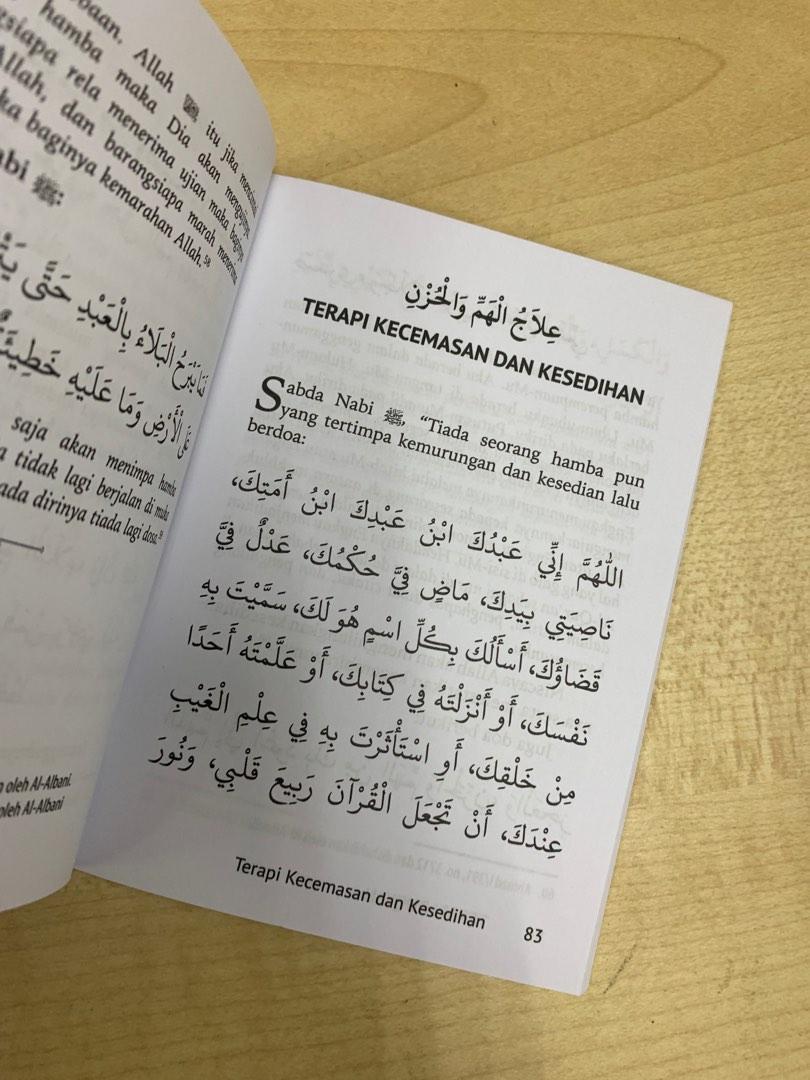 Allah ﷻ itu jika mencintai
hamba maka Dia akan mengujinya.
siapa rela menerima ujian maka baginya
Allah, dan barangsiapa marah menerima
baginya kemarahan Allah.⁵⁸
ﷺ:
فَمَا يَبْرَحُ الْبَلَاءُ بِالْعَبْدِ حَتَّى
عَلَى الْأَرْضِ وَمَا عَلَيْهِ
saja akan menimpa hamba
tidak lagi berjalan di muka
dirinya tiada lagi dosa.⁵⁹
oleh Al-Albani.
oleh Al-Albani
عِلَاجُ الْهَمِّ وَالْحُزْنِ
TERAPI KECEMASAN DAN KESEDIHAN
Sabda Nabi ﷺ, “Tiada seorang hamba pun
yang tertimpa kemurungan dan kesedian lalu
berdoa:
اللّٰهُمَّ إِنِّي عَبْدُكَ ابْنُ عَبْدِكَ ابْنُ أَمَتِكَ،
نَاصِيَتِي بِيَدِكَ، مَاضٍ فِيَّ حُكْمُكَ، عَدْلٌ فِيَّ
قَضَاؤُكَ، أَسْأَلُكَ بِكُلِّ اسْمٍ هُوَ لَكَ، سَمَّيْتَ بِهِ
نَفْسَكَ، أَوْ أَنْزَلْتَهُ فِي كِتَابِكَ، أَوْ عَلَّمْتَهُ أَحَدًا
مِنْ خَلْقِكَ، أَوِ اسْتَأْثَرْتَ بِهِ فِي عِلْمِ الْغَيْبِ
عِنْدَكَ، أَنْ تَجْعَلَ الْقُرْآنَ رَبِيعَ قَلْبِي، وَنُورَ
Terapi Kecemasan dan Kesedihan
83